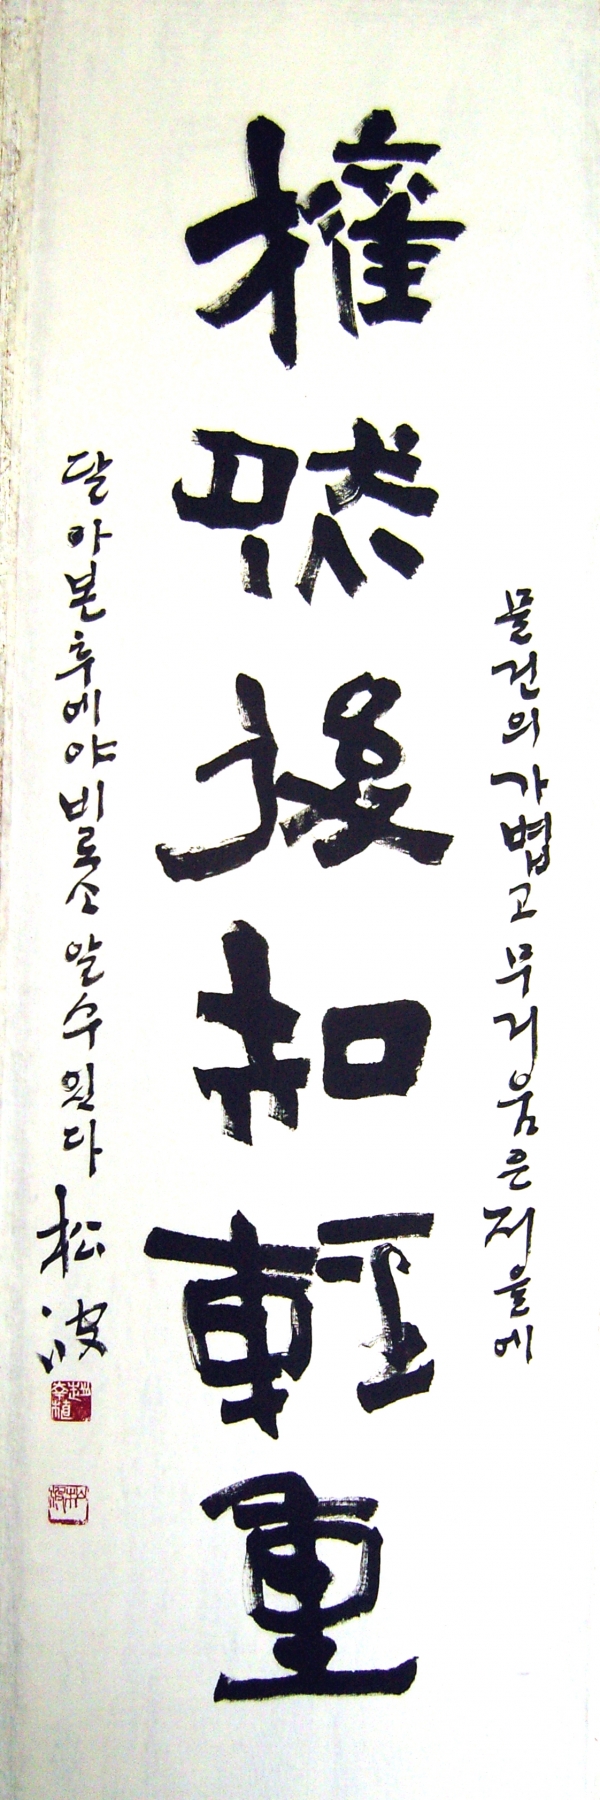 權然後知輕重
물건의 가볍고 무거움은 저울에
달아본 후에야 비로소 알 수 있다
松波